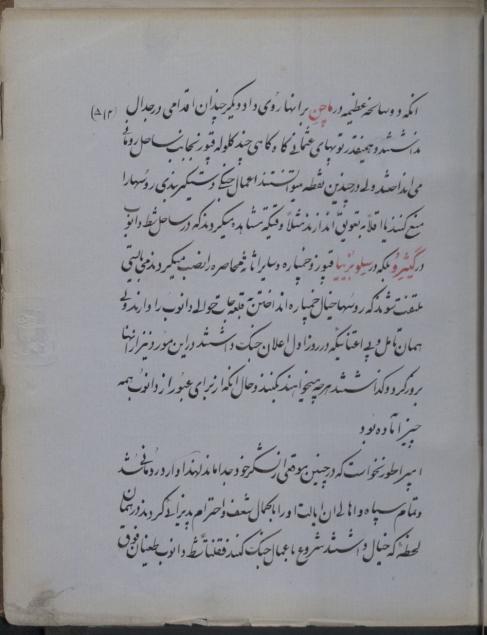 آنکه دو سانحه عظیمه در ماچین بر آنها روی داد دیگر چندان اقدامی در جدال (۵۱۲)
نداشتند و همینقدر توپهای عثمانی گاه گاهی چند کلوله قپوز بجانب ساحل رومانی
می انداختند ولی در چندین نقطه میتوانستند اعمال جنگی و سنگربندی روسها را
منع کنند یا اقلاً به تعویق اندازند مثلاً وقتیکه مشاهده میکردند که در ساحل شط دانوب
در گیرژو بلکه در سلوبزیا قپوز و خمپاره و سایر اثاثه محاصره را نصب میکردند می بایستی
ملتفت شوند که روسها خیال خمپاره انداختن به قلعه جات حوالی دانوب را دارند ولی
همان تامل و بی اعتنائیکه در روز اول اعلان جنگ داشتند در این مورد نیز از آنها
بروز کرد و گذاشتند هر چه میخواهند بکنند و حال آنکه از برای عبور از دانوب همه
چیز آماده بود
امپراطور نخواست که در چنین موقعی از لشکر خود جدا ماند لهذا وارد رومانی شد
و تمام سپاه و اهالی آن ایالت او را با کمال شعف و احترام پذیرائی کردند در همان
لحظه که خیال داشتند شروع باعمال جنگ کنند فقلتاً شط دانوب طغیان فوق